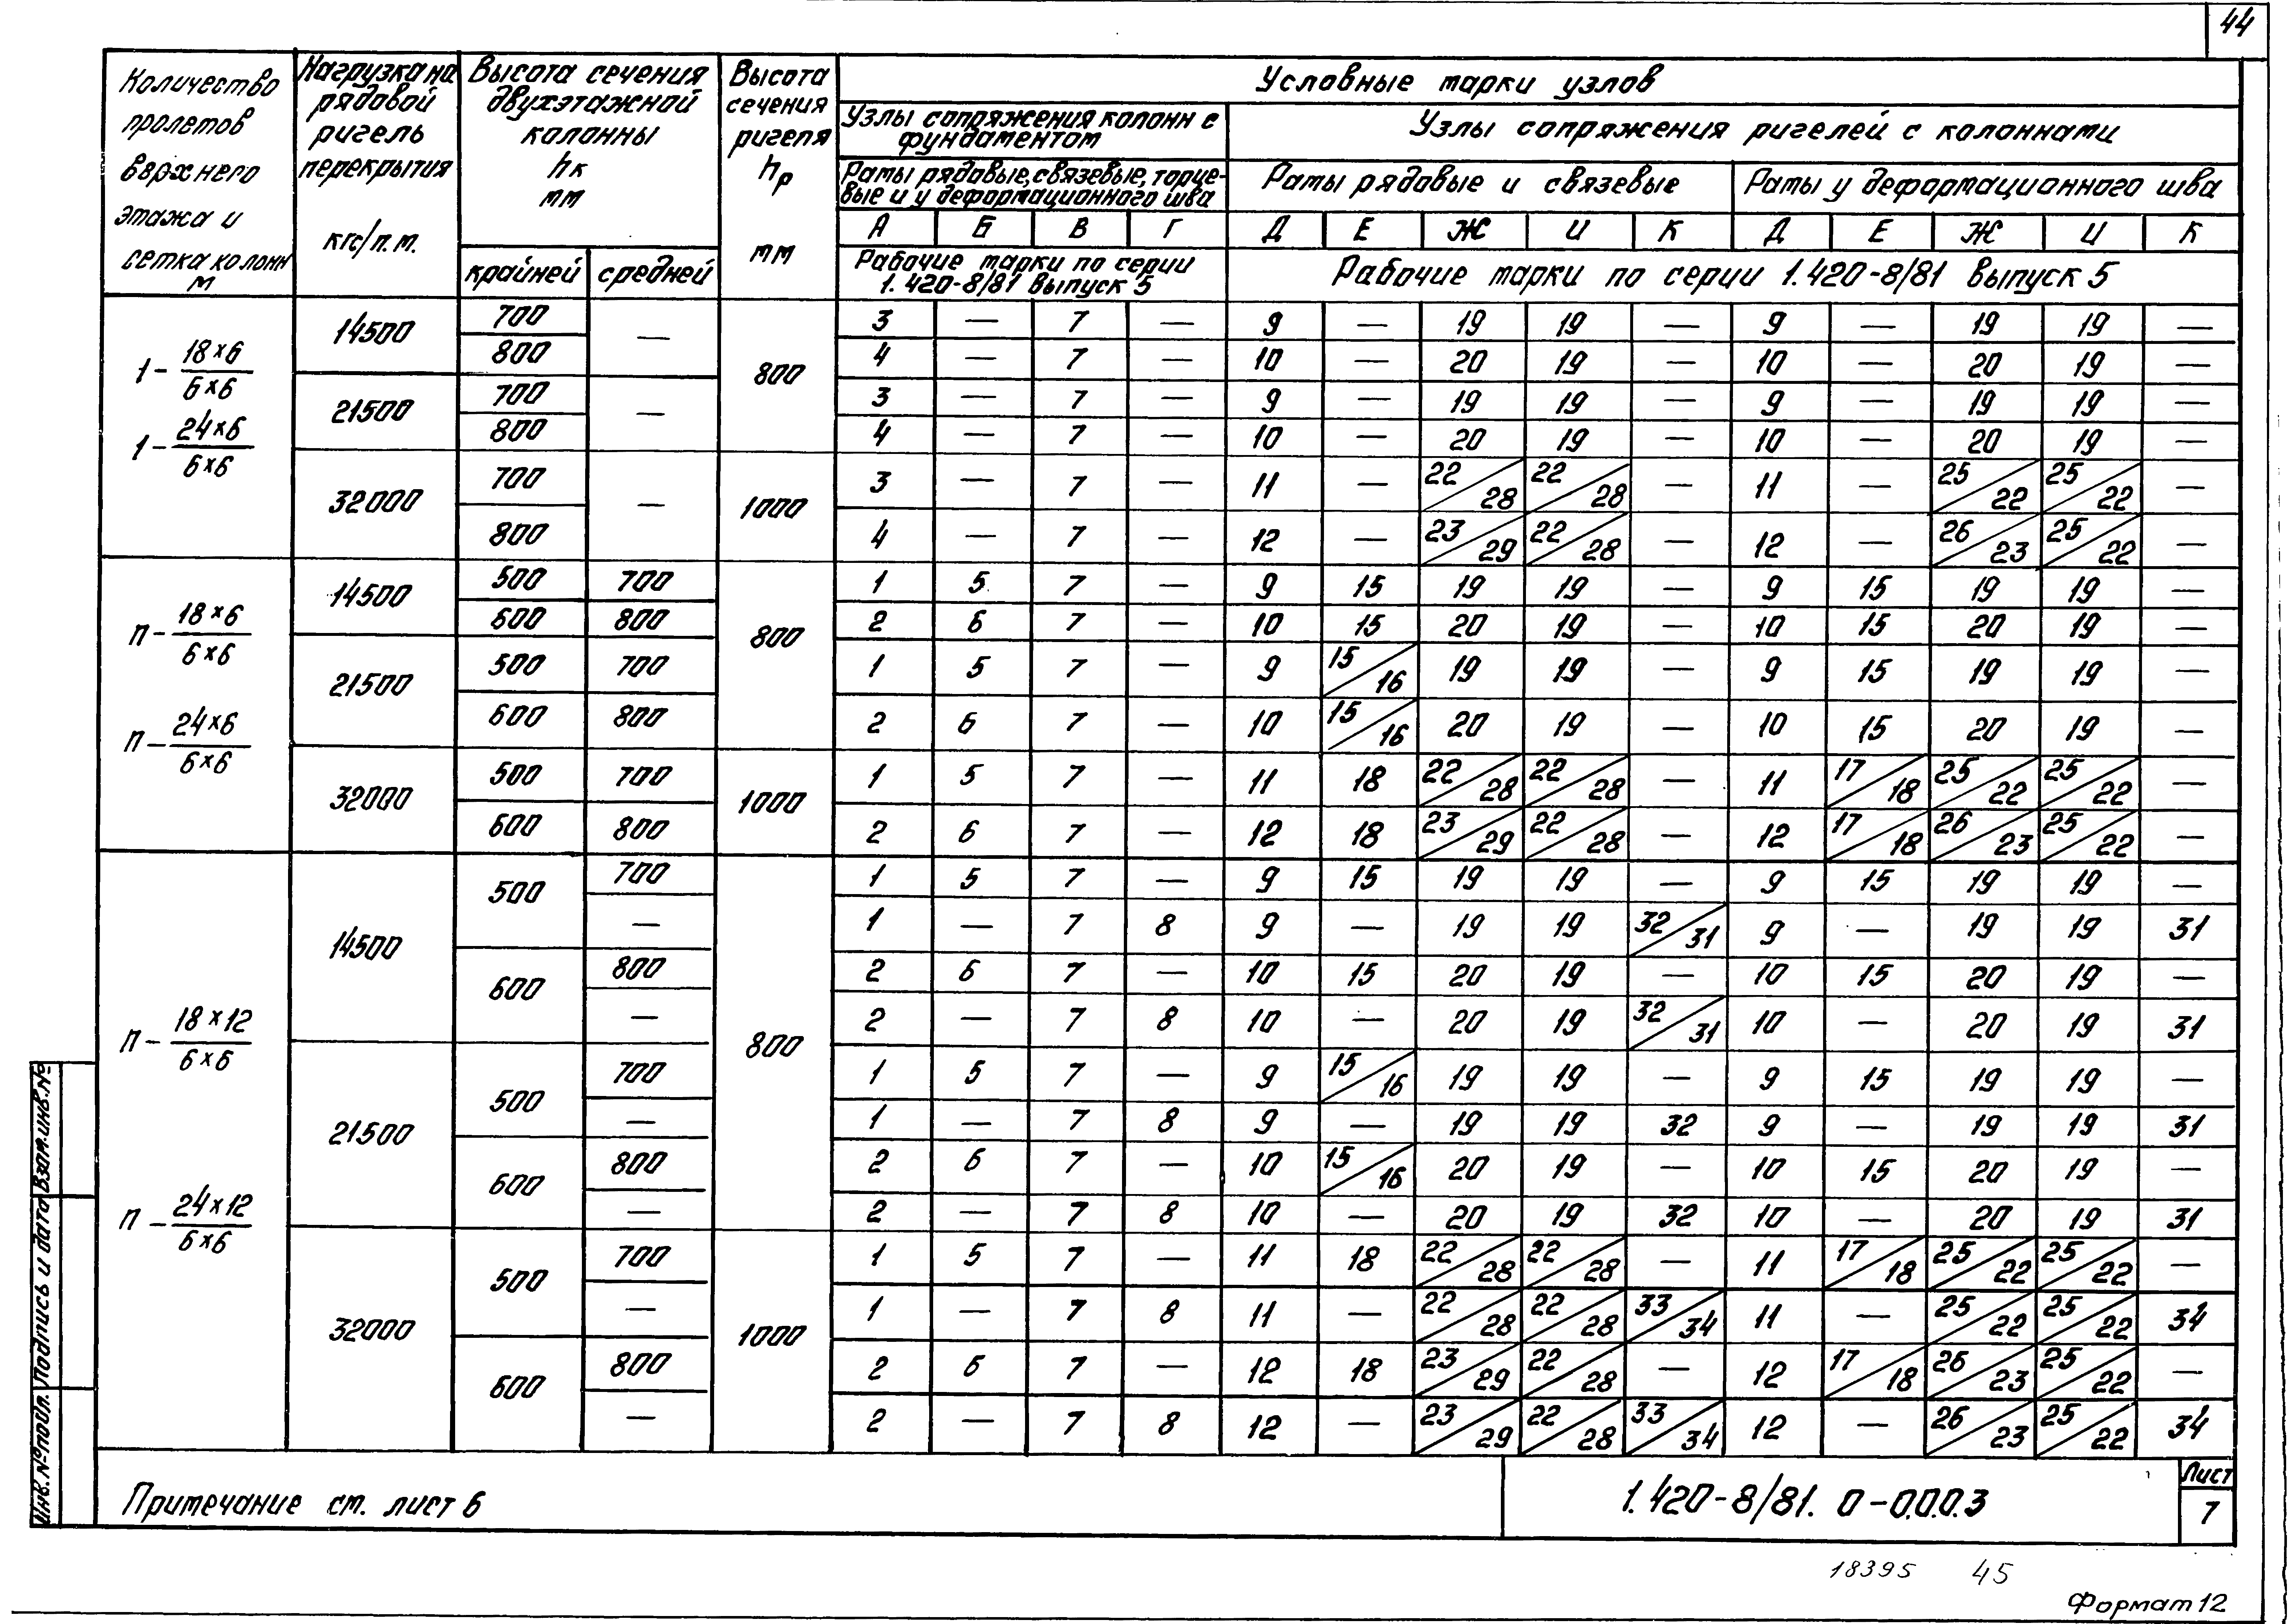 44
Количество пролетов верхнего этажа и сетка колонн м
Нагрузка на рядовой ригель перекрытия кгс/п.м.
Высота сечения двухэтажной колонны hк мм
крайней средней
Высота сечения ригеля hр мм
Условные марки узлов
Узлы сопряжения колонн с фундаментом
Узлы сопряжения ригелей с колоннами
Рамы рядовые, связевые, торцевые и у деформационного шва
Рамы рядовые и связевые
Рамы у деформационного шва
А Б В Г Д Е Ж И К Д Е Ж И К
Рабочие марки по серии 1.420-8/81 выпуск 5
Рабочие марки по серии 1.420-8/81 выпуск 5
1- 18×6 / 6×6
1- 24×6 / 6×6
14500 700 — 800 3 — 7 — 9 — 19 19 — 9 — 19 19 —
800 4 — 7 — 10 — 20 19 — 10 — 20 19 —
21500 700 — 3 — 7 — 9 — 19 19 — 9 — 19 19 —
800 4 — 7 — 10 — 20 19 — 10 — 20 19 —
32000 700 — 1000 3 — 7 — 11 — 22/28 22/28 — 11 — 25/22 25/22 —
800 4 — 7 — 12 — 23/29 22/28 — 12 — 26/23 25/22 —
п- 18×6 / 6×6
п- 24×6 / 6×6
14500 500 700 800 1 5 7 — 9 15 19 19 — 9 15 19 19 —
600 800 2 6 7 — 10 15 20 19 — 10 15 20 19 —
21500 500 700 1 5 7 — 9 15/16 19 19 — 9 15 19 19 —
600 800 2 6 7 — 10 15/16 20 19 — 10 15 20 19 —
32000 500 700 1000 1 5 7 — 11 18 22/28 22/28 — 11 17/18 25/22 25/22 —
600 800 2 6 7 — 12 18 23/29 22/28 — 12 17/18 26/23 25/22 —
п- 18×12 / 6×6
п- 24×12 / 6×6
14500 500 700 800 1 5 7 — 9 15 19 19 — 9 15 19 19 —
— 1 — 7 8 9 — 19 19 32/31 9 — 19 19 31
600 800 2 6 7 — 10 15 20 19 — 10 15 20 19 —
— 2 — 7 8 10 — 20 19 32/31 10 — 20 19 31
21500 500 700 1 5 7 — 9 15/16 19 19 — 9 15 19 19 —
— 1 — 7 8 9 — 19 19 32 9 — 19 19 31
600 800 2 6 7 — 10 15/16 20 19 — 10 15 20 19 —
— 2 — 7 8 10 — 20 19 32 10 — 20 19 31
32000 500 700 1000 1 5 7 — 11 18 22/28 22/28 — 11 17/18 25/22 25/22 —
— 1 — 7 8 11 — 22/28 22/28 33/34 11 — 25/22 25/22 34
600 800 2 6 7 — 12 18 23/29 22/28 — 12 17/18 26/23 25/22 —
— 2 — 7 8 12 — 23/29 22/28 33/34 12 — 26/23 25/22 34
Примечание см. лист 6
1.420-8/81. 0-0.0.0.3
Лист
7
Инв.№подл. Подпись и дата Взам.инв.№
18395 45
Формат 12